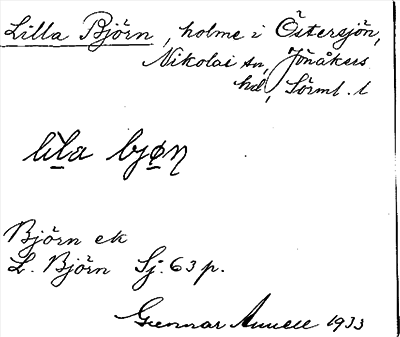 Lilla Björn, holme i Östersjön,
Nikolai sn, Jönåkers
hd, Sörml. l
lịla bjøn̥
Björn ek
L. Björn Sj. 63 p.
Gunnar Annell 1933